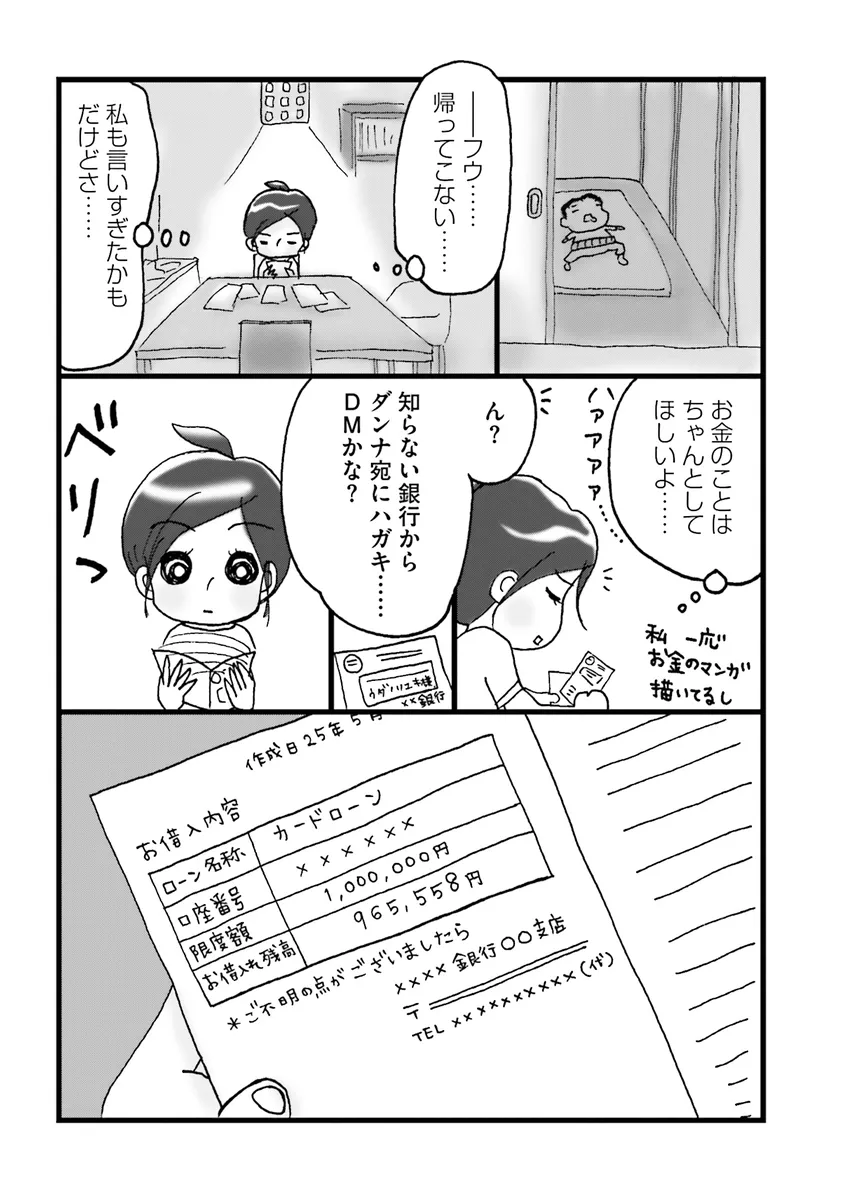 ――フウ……
帰ってこない……
私も言いすぎたかも
だけどさ……
お金のことは
ちゃんとして
ほしいよ……
ハァアァァ……
私 一応
お金のマンガ
描いてるし
ん?
知らない銀行から
ダンナ宛にハガキ……
DMかな?
ウダハリエ木様
××銀行
ベリっ
作成日25年5月
お借入内容
ローン名称 カードローン
口座番号 ××××××
限度額 1,000,000円
お借入れ残高 965,558円
*ご不明の点がございましたら
××××銀行〇〇支店
〒
TEL ××××××××××(代)